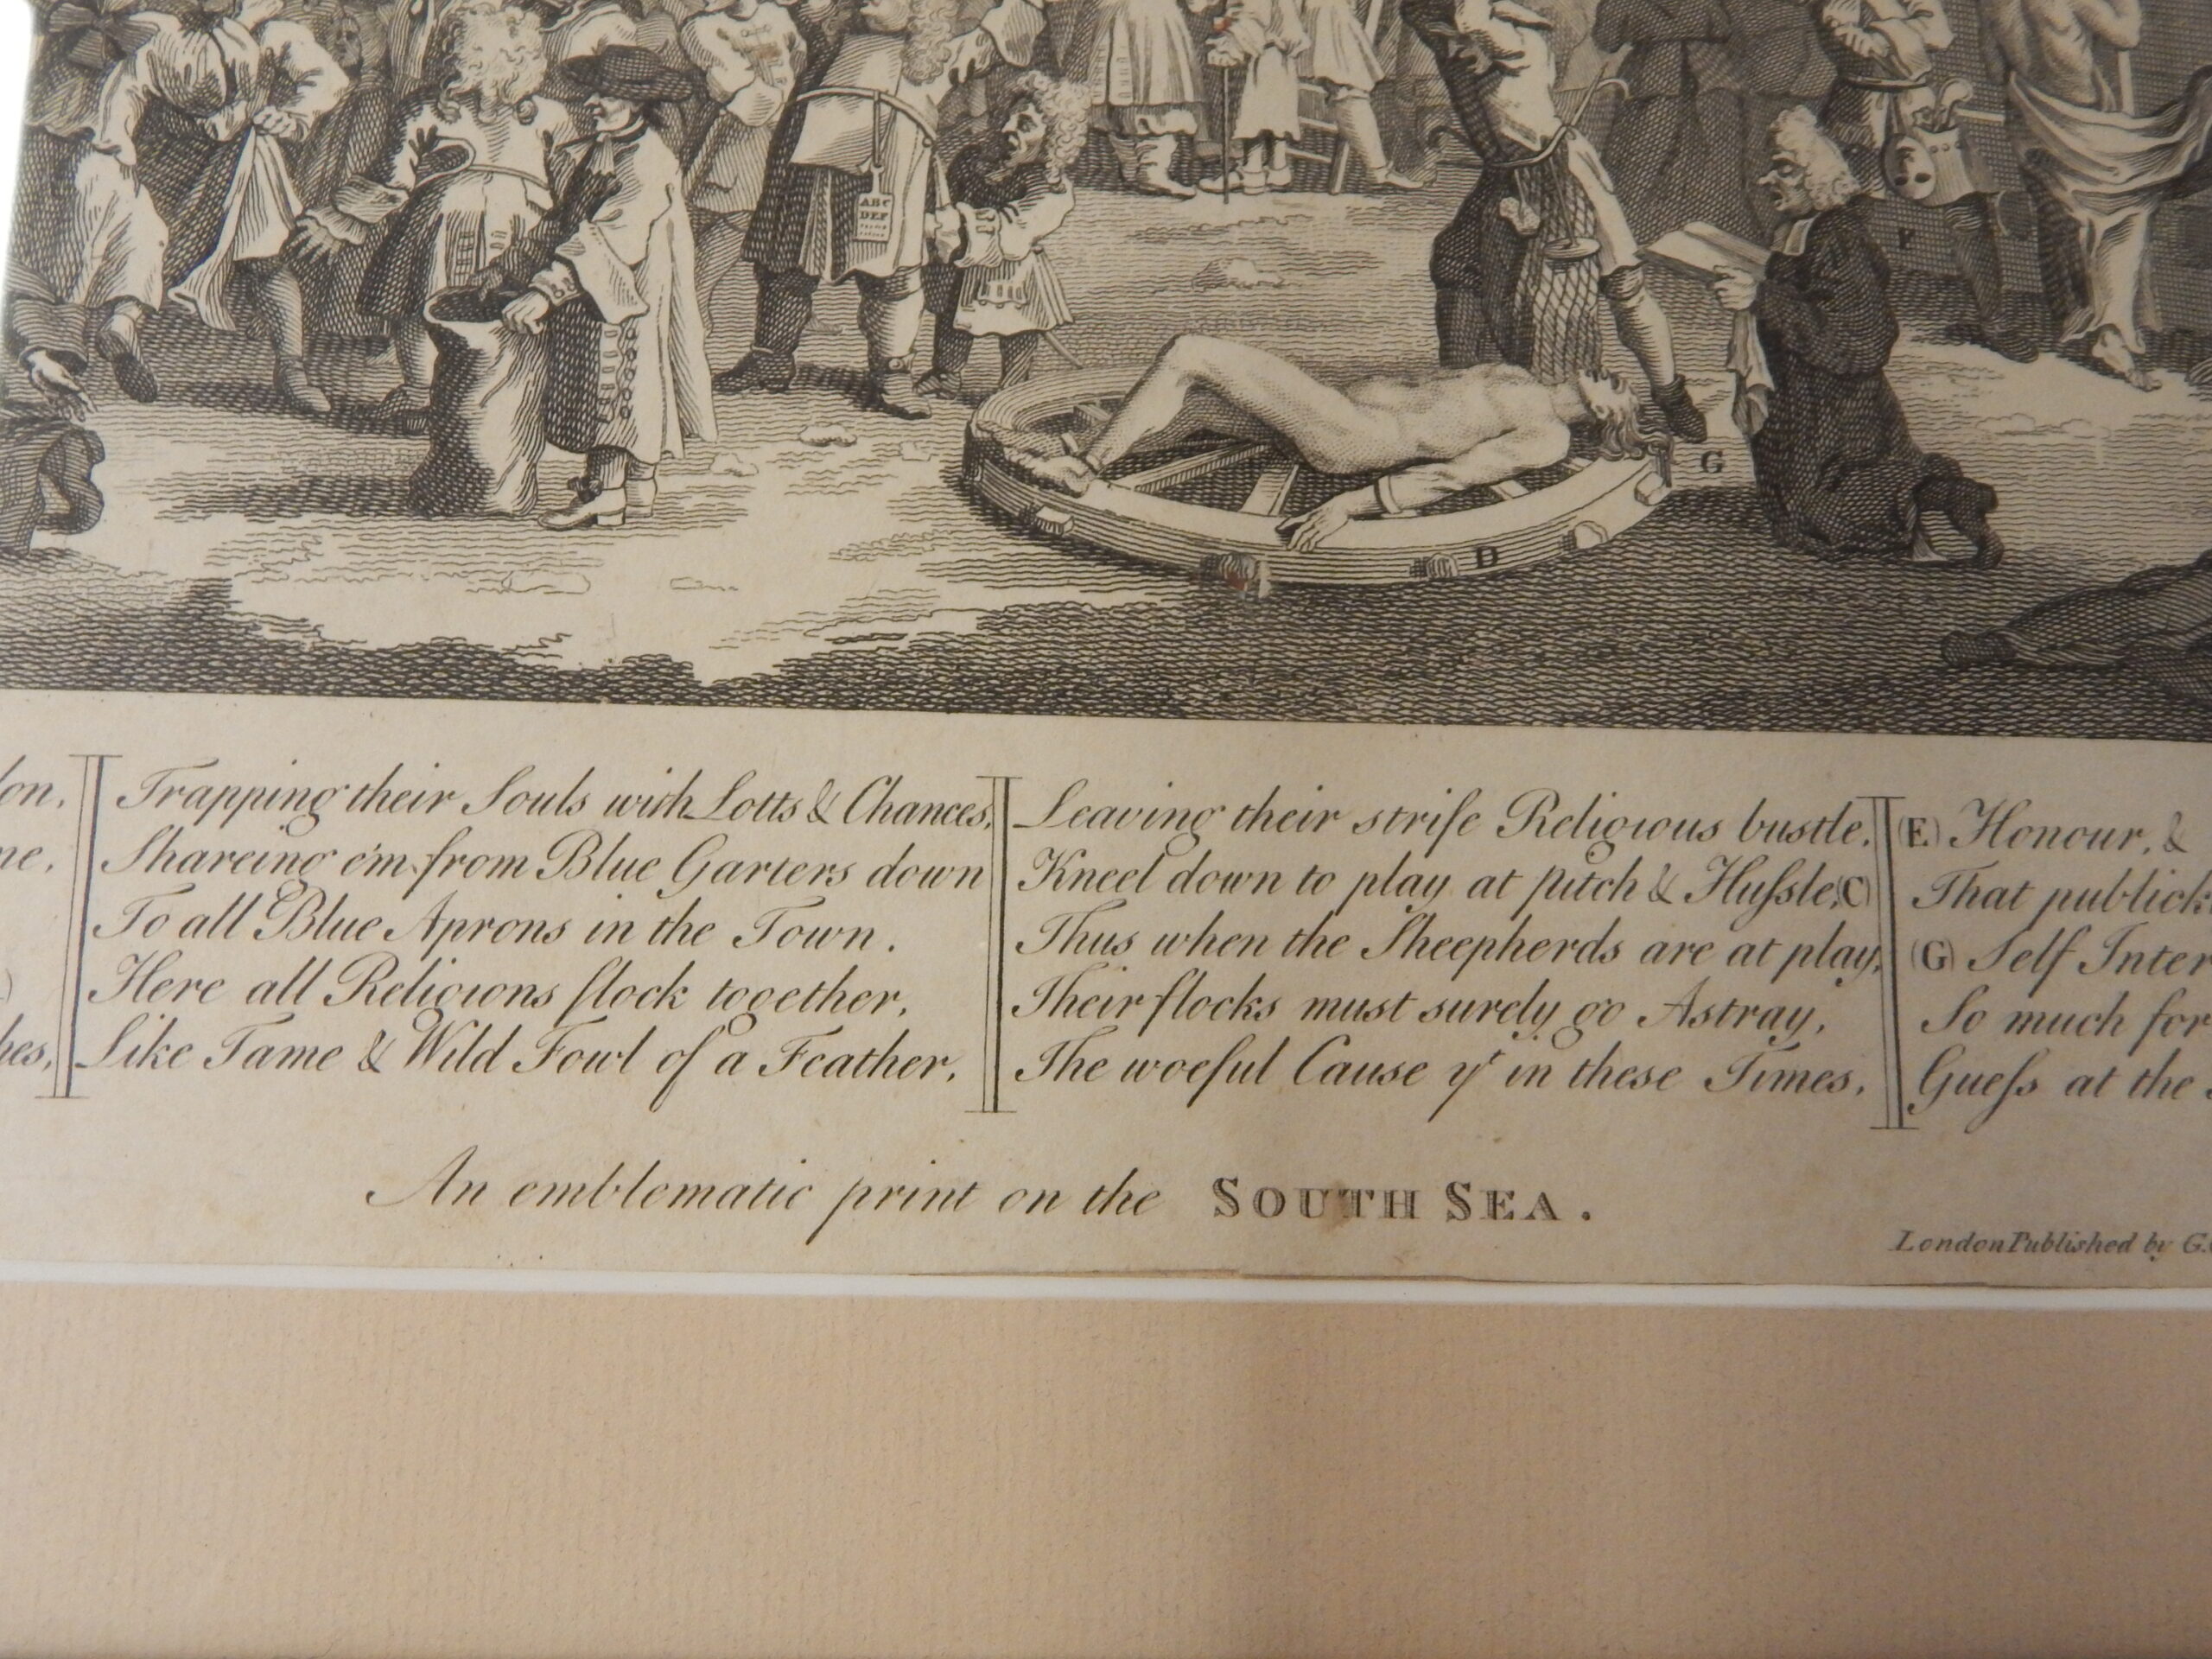 ABC
DEF
F
G
D
Trapping their Souls with Lotts & Chances,
Shareing em from Blue Garters down
To all Blue Aprons in the Town.
Here all Religions flock together,
Like Tame & Wild Fowl of a Feather,
Leaving their strife Religious bustle,
Kneel down to play at pitch & Hussle; (C)
Thus when the Sheepherds are at play,
Their flocks must surely go Astray,
The woeful Cause yt in these Times,
(E) Honour, &
That publick
(G) Self Inter
So much for
Guess at the
An emblematic print on the SOUTH SEA.
London Published by G.